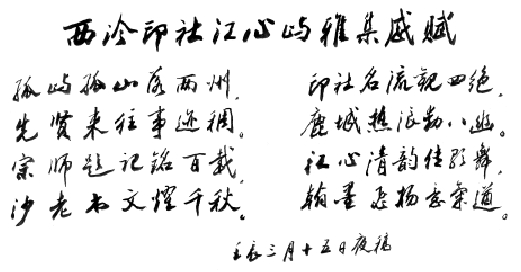 西泠印社江心屿雅集感赋
孤屿孤山落两州,
先贤来往事迹稠。
宗师题记铭百载,
沙老书文耀千秋。
印社名流观四绝,
鹿城热浪动八幽。
江心清韵佳 舞,
翰墨飞扬意气遒。
壬辰三月十五日夜稿